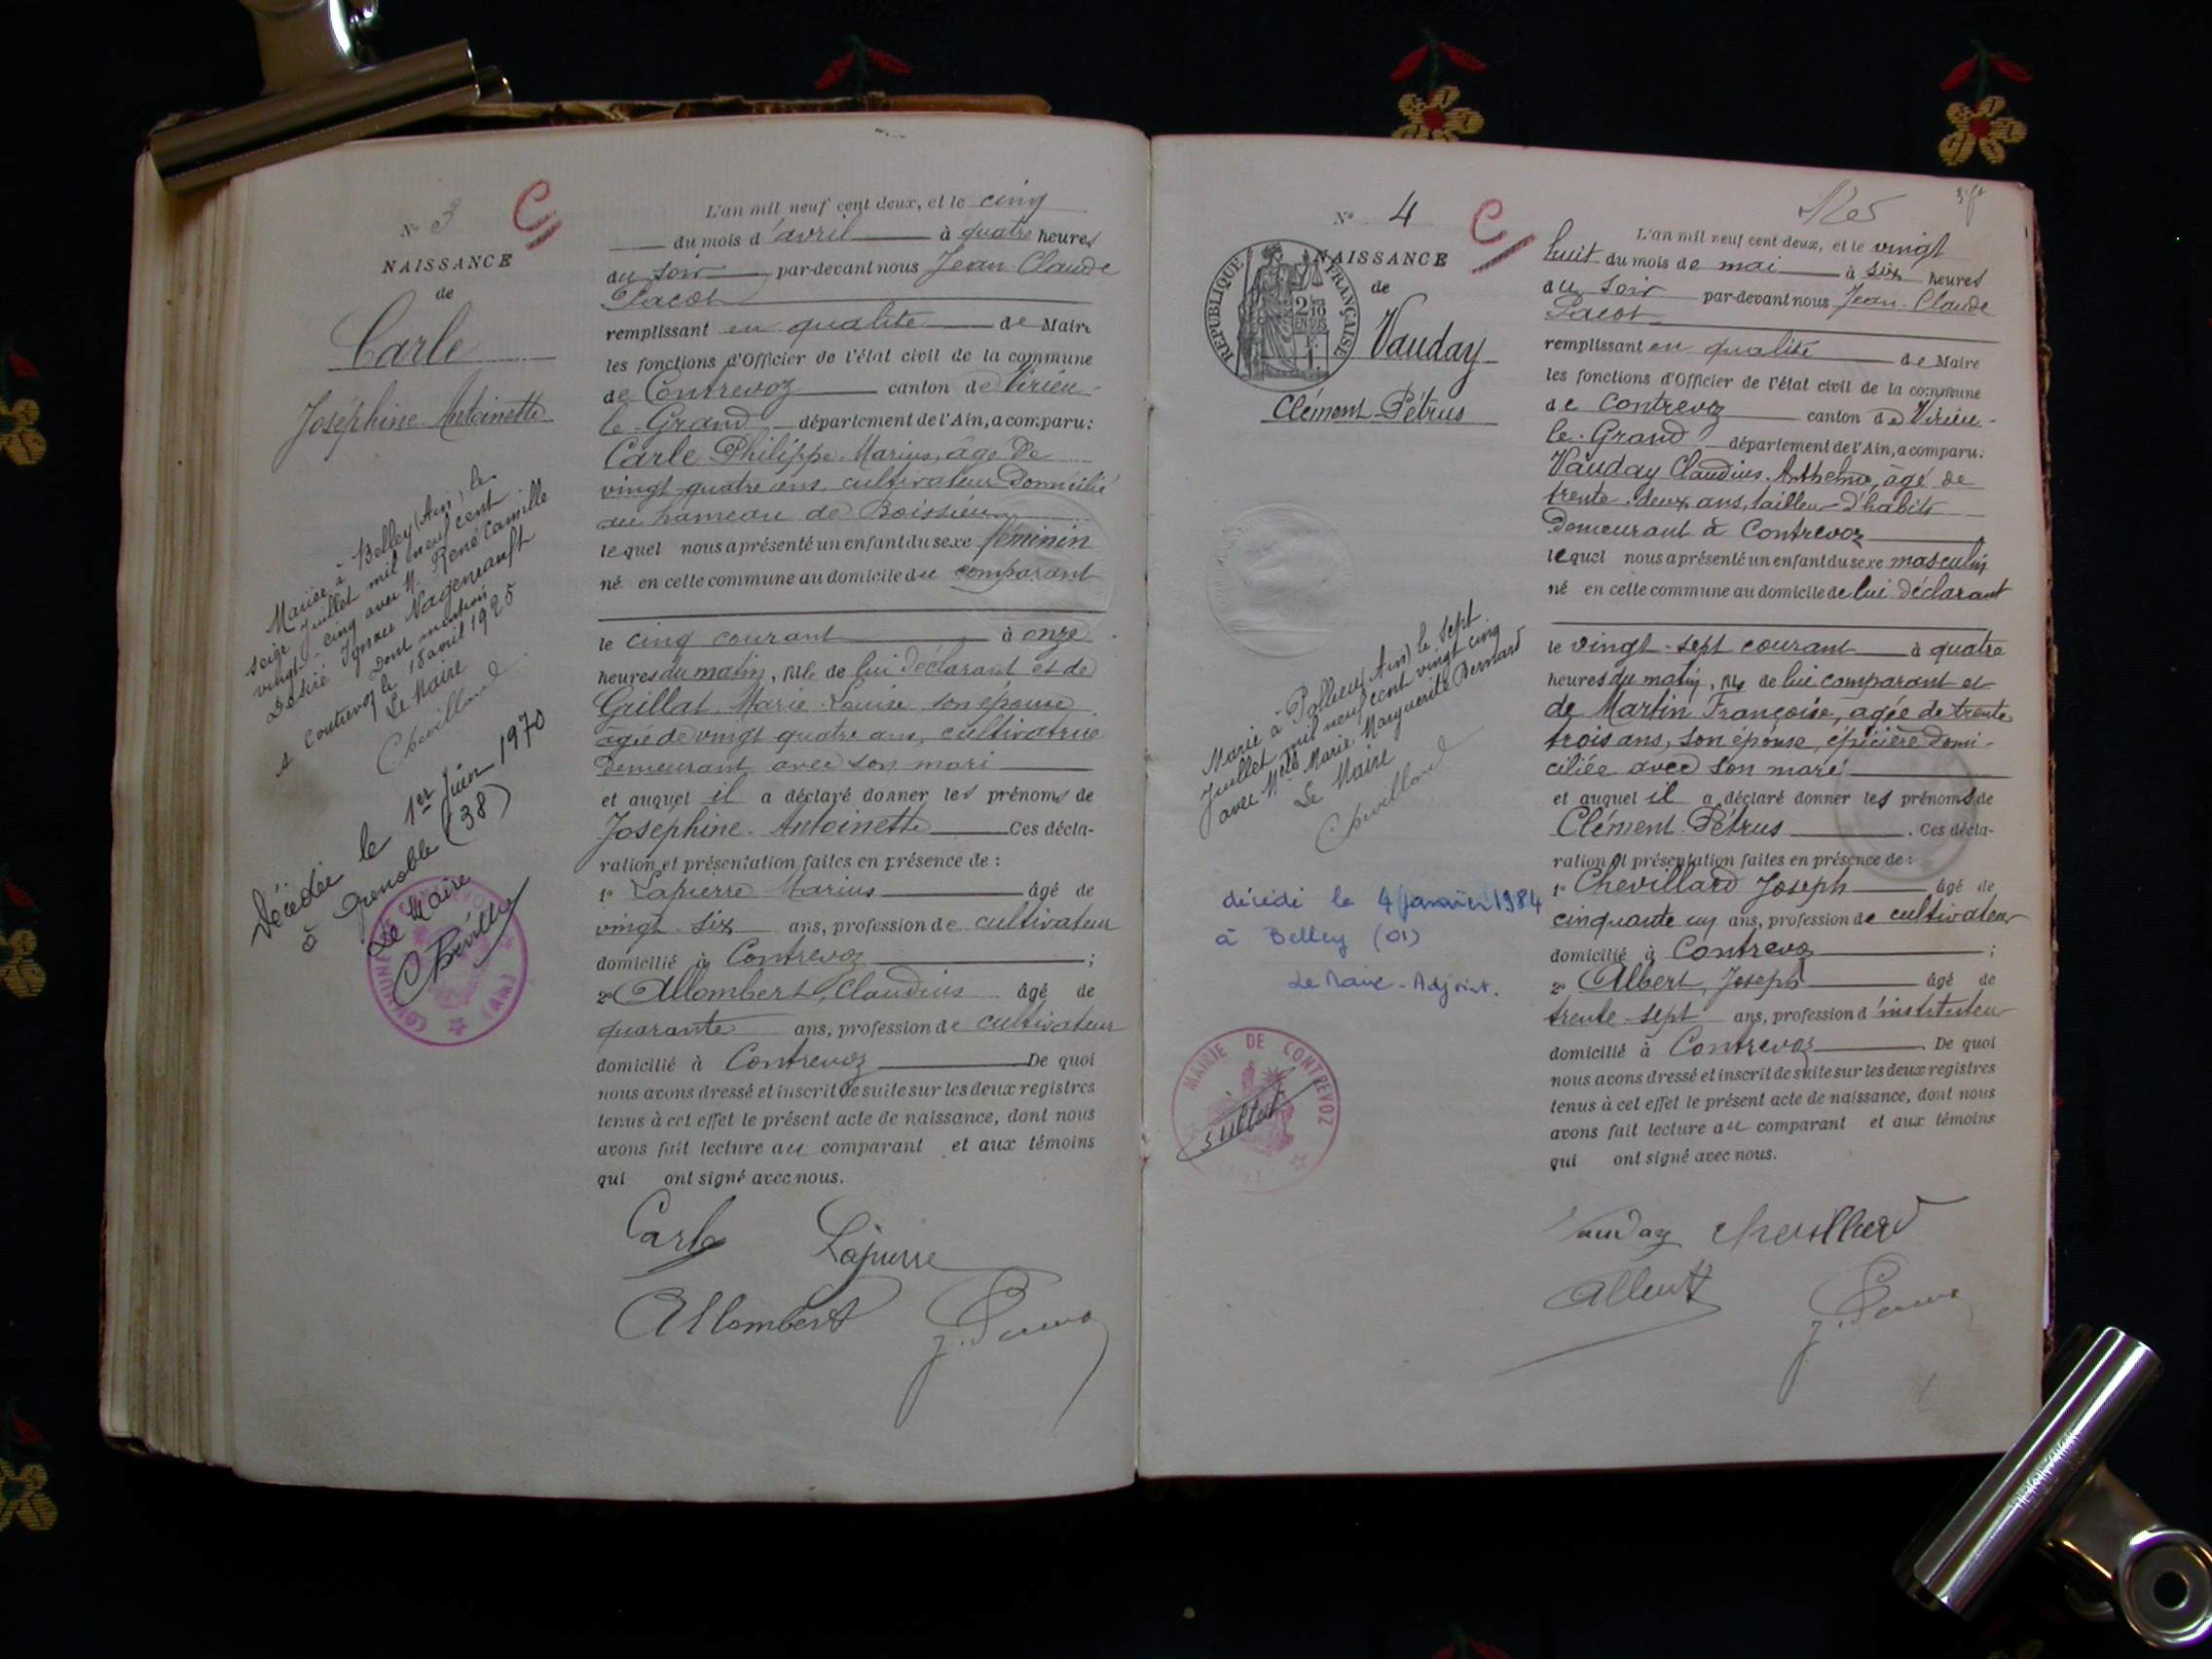 N° 3
C
NAISSANCE
de
Carle
Joséphine Antoinette
Mariée à Belley (Ain) le
seize juillet mil neuf cent
vingt-cinq avec M. René Camille
Désiré Ignace
Dont mention
A Contrevoz le 18 1925
Le Maire
Chevillard
Décédée le 1er Juin 1970
à Grenoble (38)
Le Maire
L'an mil neuf cent deux, et le cinq
du mois d'avril à quatre heures
du soir par-devant nous Jean-Claude
Pacot
remplissant en qualité de Maire
les fonctions d'Officier de l'état civil de la commune
de Contrevoz canton de Virieu-
le-Grand département de l'Ain, a comparu:
Carle Philippe Marius, âgé de
vingt quatre ans, cultivateur domicilié
au hameau de Boissieu
lequel nous a présenté un enfant du sexe féminin
né en cette commune au domicile du comparant
le cinq courant à onze
heures du matin, fille de lui déclarant et de
Grillat Marie Louise son épouse
agée de vingt quatre ans, cultivatrice
demeurant avec son mari
et auquel il a déclaré donner les prénoms de
Josephine Antoinette Ces décla-
ration et présentation faites en présence de :
1° Lapierre Marius âgé de
vingt six ans, profession de cultivateur
domicilié à Contrevoz ;
2° Allombert, Claudius âgé de
quarante ans, profession de cultivateur
domicilié à Contrevoz De quoi
nous avons dressé et inscrit de suite sur les deux registres
tenus à cet effet le présent acte de naissance, dont nous
avons fait lecture au comparant et aux témoins
qui ont signé avec nous.
Carle Lapierre
Allombert
N° 4
C
NAISSANCE
de
RÉPUBLIQUE FRANÇAISE
Vauday
Clément Pétrus
Marié à (Ain) le sept
juillet mil neuf cent vingt cinq
avec Melle Marie Marguerite Bernard
Le Maire
Chevillard
décédé le 4 janvier 1984
à Belley (01)
Le Maire-Adjoint.
MAIRIE DE CONTREVOZ
L'an mil neuf cent deux, et le vingt
huit du mois de mai à six heures
du soir par-devant nous Jean-Claude
Pacot
remplissant en qualité de Maire
les fonctions d'Officier de l'état civil de la commune
de Contrevoz canton de Virieu-
le-Grand département de l'Ain, a comparu:
Vauday Claudius Anthelme, âgé de
trente-deux ans, tailleur d'habits
demeurant à Contrevoz
lequel nous a présenté un enfant du sexe masculin
né en cette commune au domicile de lui déclarant
le vingt-sept courant à quatre
heures du matin, fils de lui comparant et
de Martin Françoise, agée de trente
trois ans, son épouse, épicière domi-
ciliée avec son mari
et auquel il a déclaré donner les prénoms de
Clément Pétrus . Ces décla-
ration et présentation faites en présence de :
1° Chevillard Joseph âgé de
cinquante un ans, profession de cultivateur
domicilié à Contrevoz ;
2° Albert, Joseph âgé de
trente-sept ans, profession d'instituteur
domicilié à Contrevoz De quoi
nous avons dressé et inscrit de suite sur les deux registres
tenus à cet effet le présent acte de naissance, dont nous
avons fait lecture au comparant et aux témoins
qui ont signé avec nous.
Vauday Chevillard
Albert